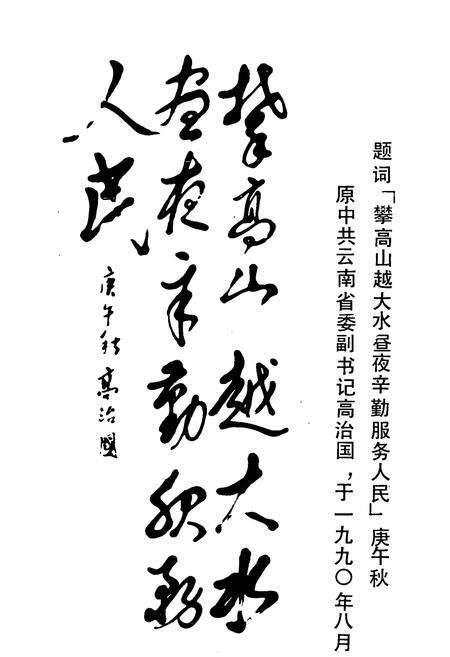 题词「攀高山越大水昼夜辛勤服务人民」庚午秋
原中共云南省委副书记高治国，于一九九〇年八月
攀高山越大水
昼夜辛勤服务
人民
庚午秋高治國